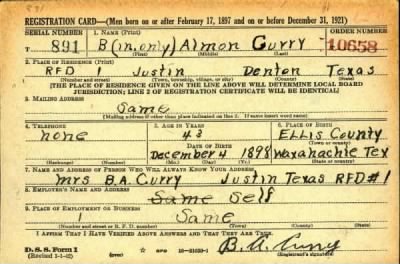 891
REGISTRATION CARD—(Men born on or after February 17, 1897 and on or before December 31, 1921)
SERIAL NUMBER 1. NAME (Print) ORDER NUMBER
891 B (in. only) Almon Curry 10658
(First) (Middle) (Last)
2. PLACE OF RESIDENCE (Print)
RFD Justin Denton Texas
(Number and street) (Town, township, village, or city) (County) (State)
[THE PLACE OF RESIDENCE GIVEN ON THE LINE ABOVE WILL DETERMINE LOCAL BOARD
JURISDICTION; LINE 2 OF REGISTRATION CERTIFICATE WILL BE IDENTICAL]
3. MAILING ADDRESS
Same
[Mailing address if other than place indicated on line 2. If same insert word same]
4. TELEPHONE 5. AGE IN YEARS 6. PLACE OF BIRTH
none 43 Ellis County
DATE OF BIRTH (Town or county)
December 4 1898 Waxahachie Tex
(Exchange) (Number) (Mo.) (Day) (Yr.) (State or country)
7. NAME AND ADDRESS OF PERSON WHO WILL ALWAYS KNOW YOUR ADDRESS
Mrs BA Curry Justin Texas RFD#1
8. EMPLOYER'S NAME AND ADDRESS
Same Self
9. PLACE OF EMPLOYMENT OR BUSINESS
1 Same
(Number and street or R. F. D. number) (Town) (County) (State)
I AFFIRM THAT I HAVE VERIFIED ABOVE ANSWERS AND THAT THEY ARE TRUE.
D. S. S. Form 1 GPO B. A. Curry
(Revised 1-1-42) (Registrant's signature)